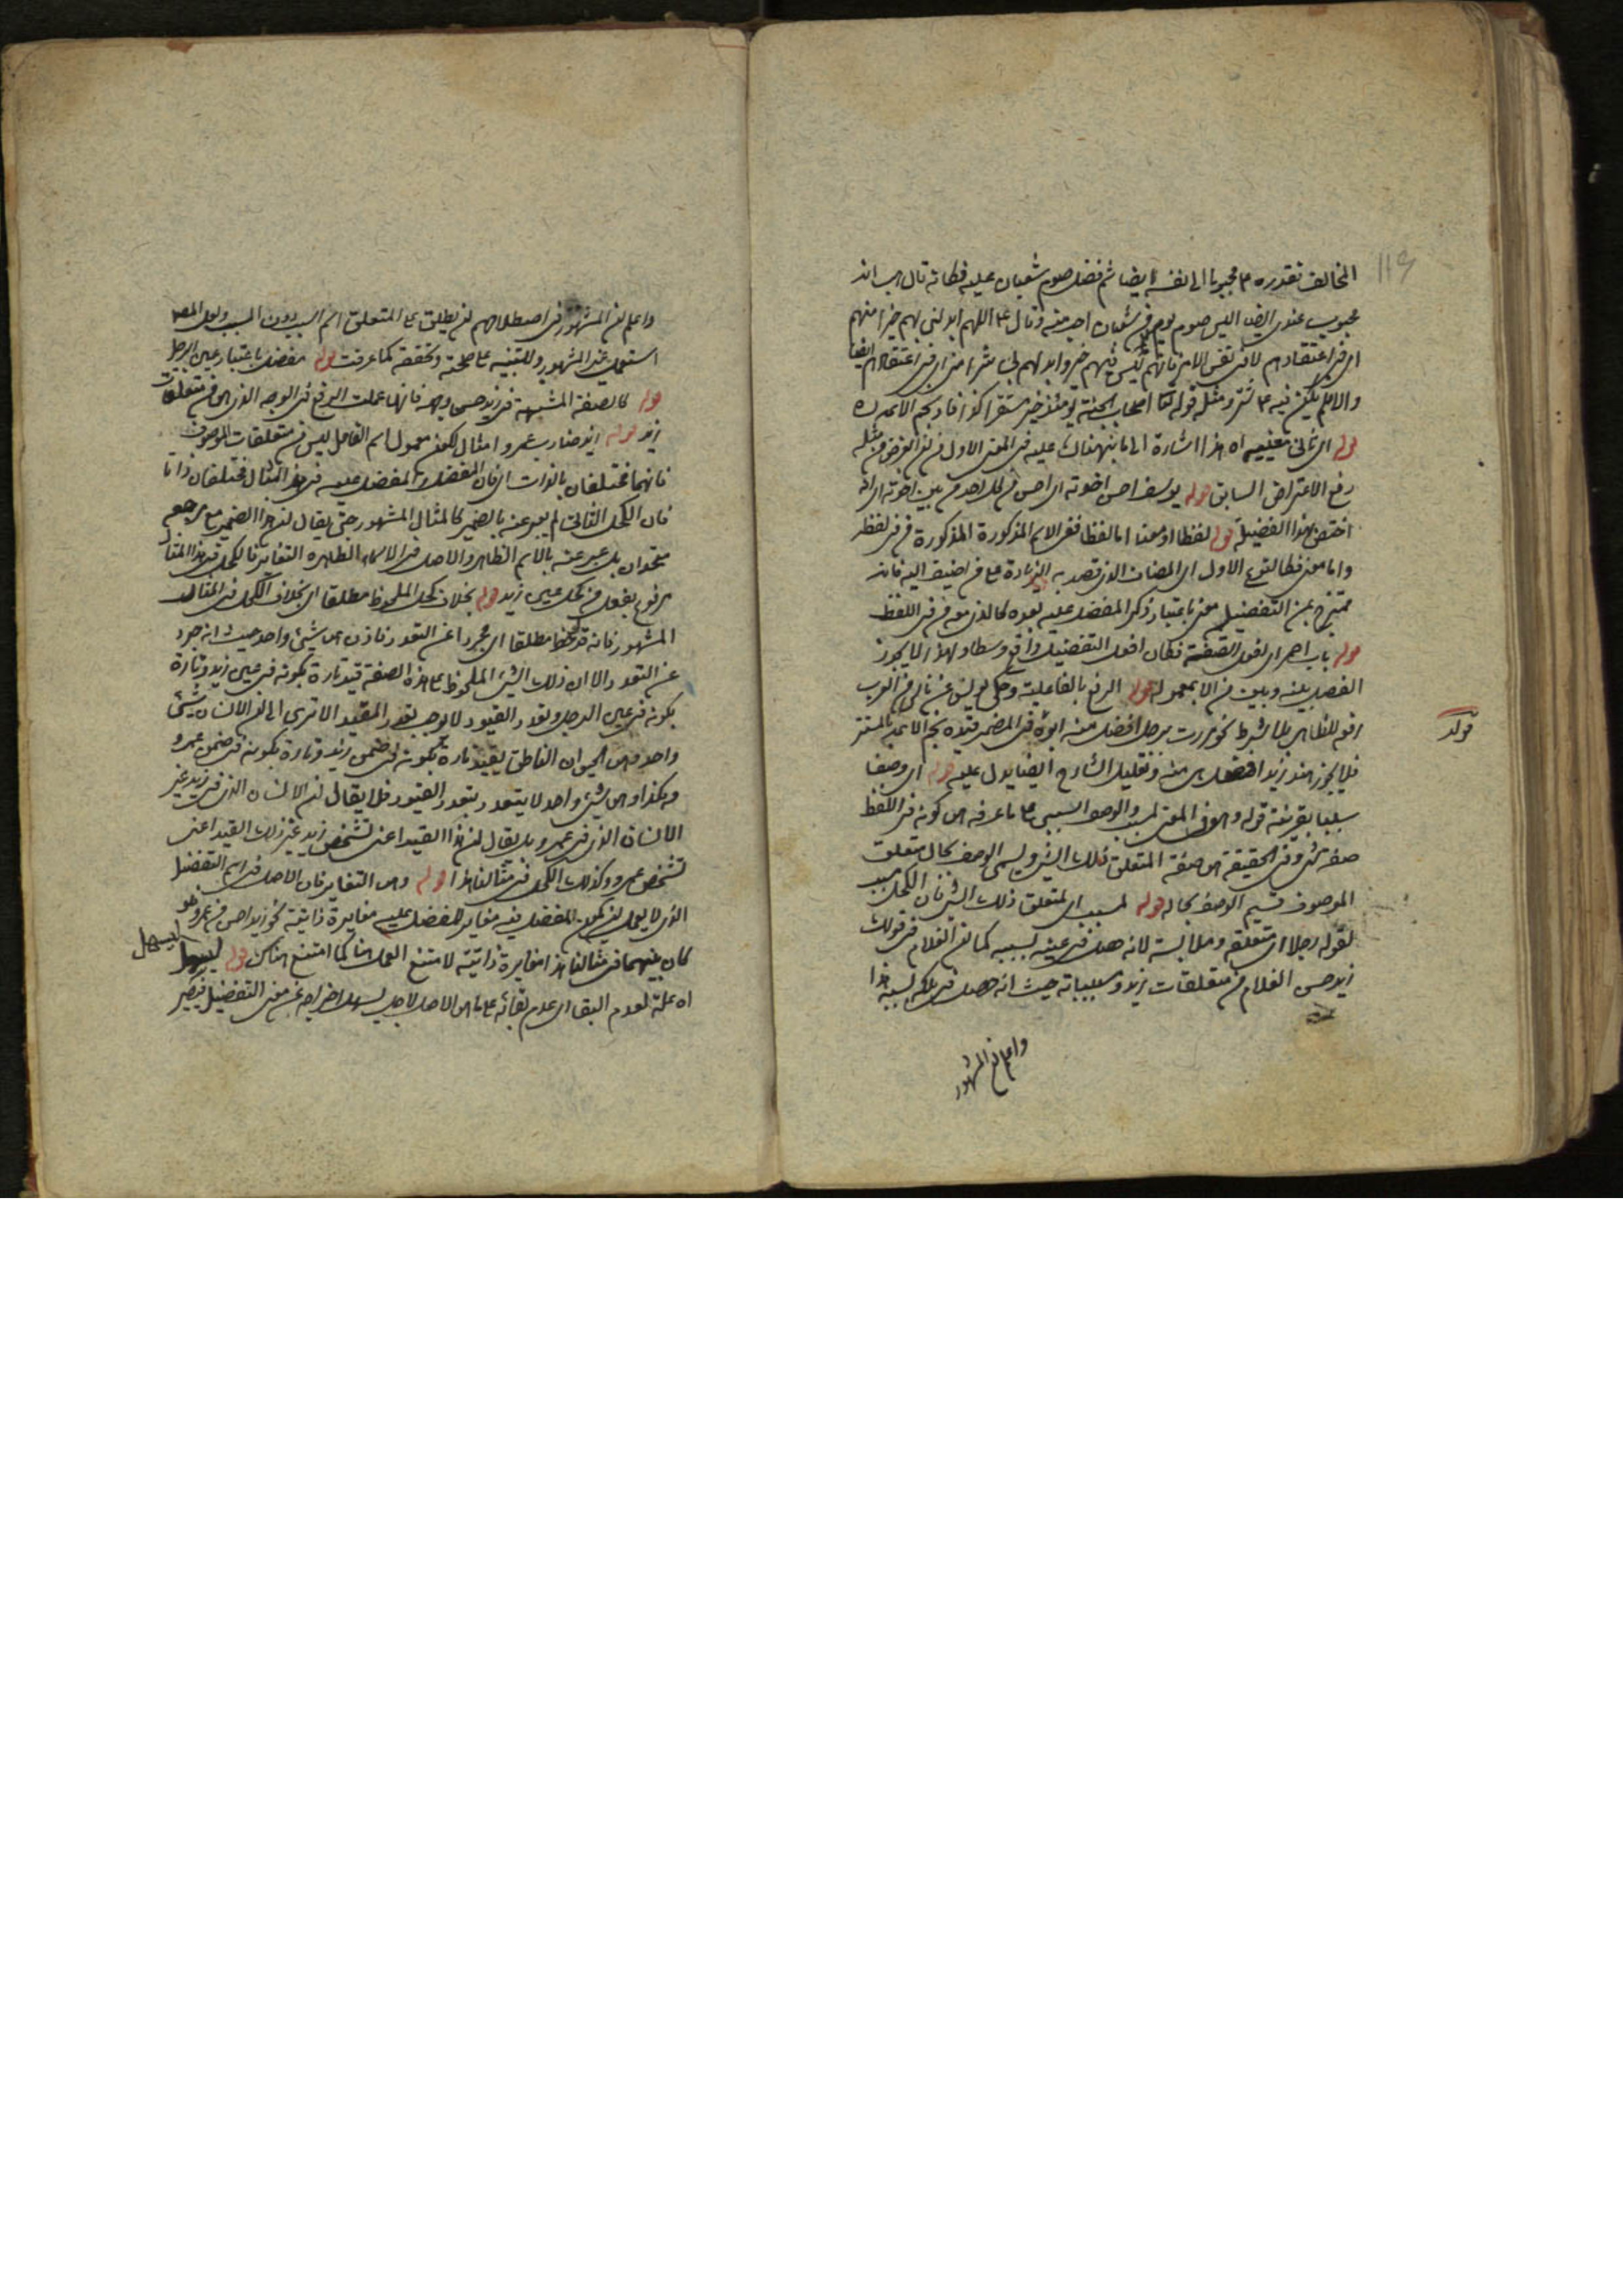 المخالف تقدره ع محبوبا الى نفسه ايضا ثم فضل صوم شعبان عليه فكانه قال هب انه
محبوب عندى ايضا اليس صوم يوم من شعبان احب منه وقال ع اللهم ابدلنى بهم خيرا منهم
اى فى اعتقادهم لا فى نفس الامر فانهم ليس فيهم خير وابدلهم بى شرا منى اى فى اعتقادهم ايضا
والا فلم يكن فيه ع شر ومثله قوله تعا اصحاب الجنة يومئذ خير مستقرا كذا افاد نجم الائمة
قوله اى ثانى معنييه اه هذا اشارة الى ما نبهناك عليه فى المعنى الاول من ان الغرض من مثله
رفع الاعتراض السابق قوله يوسف احسن اخوته اى احسن من كل احد من بين اخوته اى انه
اختص بهذا الفضيلة قوله لفظا او معنا اما لفظا ففى الاسم المذكورة المذكورة من فى لفظه
واما معنى فكالنوع الاول اى المضاف الذى قصد به الزيادة على من اضيف اليه فانه
ممتزج بمن التفضيل معنى باعتبار ذكر المفضل عليه بعده كالذى معه من فى اللفظ
قوله باب احمر اى افعل الصفة فكان افعل التفضيل واقع وسطا ولهذا لا يجوز
الفصل بينه وبين من الا بمعموله قوله الرفع بالفاعلية وحكى يونس عن ناس من العرب
رفعه للظاهر بلا شرط نحو مررت برجل افضل منه ابوه فى المضمر قيده نجم الائمة بالمستتر
فلا يجوز هند زيد افضل منه وتعليل الشارح ايضا يدل عليه قوله اى وصفا
سببيا بقرينة قوله وهو فى المعنى لمسبب والوصف السببى على ما عرفه هى كونه فى اللفظ
صفة شئ وفى الحقيقة هى صفة المتعلق ذلك الشئ ويسمى الوصف بحال متعلق
الموصوف قسيم الوصف بحاله قوله لمسبب اى لمتعلق ذلك الشئ فان الكحل مسبب
لقوله رجلا اى متعلقه وملابسه لانه حصل فى عينه بسببه كما ان الغلام فى قولك
زيد حسن الغلام من متعلقات زيد ومسبباته حيث انه حصل فى ملكه بسببه هذا
واعلم ان المشهور
قوله
واعلم ان المشهور فى اصطلاحهم ان يطلق على المتعلق اسم السبب دون المسبب ولعل المص
استعمل غير المشهور وللتنبيه على صحته وتحققه كما عرفت قوله مفضل باعتبار عين الرجل
قوله كالصفة المشبهة فى زيد حسن وجهه فانها عملت الرفع فى الوجه الذى هى من متعلقات
زيد قوله زيد ضارب عمرو امثال لكون معمول اسم الفاعل ليس من متعلقات الموصوف
فانهما مختلفان بالذات اى فان المفضل والمفضل عليه فى هذا المثال مختلفان ذاتا
فان الكحل الثانى لم يعبر عنه بالضمير كالمثال المشهور حتى يقال ان هذا الضمير مع مرجعه
متحدان بل عبر عنه بالاسم الظاهر والاصل فى الاسماء الظاهره التغاير فالكحل فى هذا المثال
مرفوع بفعل من كحل عين زيد قوله بخلاف كحل الملحوظ مطلقا اى بخلاف الكحل فى المثال
المشهور فانه قد لحظ مطلقا اى مجردا عن التعدد فاذن هى شيئ واحد حيث انه جرد
عن التعدد الا ان ذلك الشئ الملحوظ على هذه الصفة قيد تارة بكونه فى عين زيد وتارة
بكونه فى عين الرجل وتعدد القيود لا يوجب تعدد المقيد الا ترى الى ان الانسان شيئ
واحد وهى الحيوان الناطق يقيد تارة بكونه فى ضمن زيد وتارة بكونه فى ضمن عمرو
وهكذا وهى شيئ واحد لا يتعدد بتعدد القيود فلا يقال ان الانسان الذى فى زيد غير
الانسان الذى فى عمرو بل يقال ان هذا القيد اعنى تشخص زيد غير ذلك القيد اعنى
تشخص عمرو وكذلك الكحل فى مثالنا هذا قوله وهى التغاير فان الاصل فى اسم التفضيل
الذى لا يعمل ان يكون المفضل فيه مغاير للمفضل عليه مغايرة ذاتية نحو زيد احسن من عمرو فلو
كان بينهما فى مثالنا هذا مغايرة ذاتية لامتنع العمل هنا كما امتنع هناك قوله ليسهل
ليسهل
اه علة لعدم البقا اى عدم بقائه على ما هى الاصل لاجل يسهل اخراجه عن معنى التفضيل فيصير